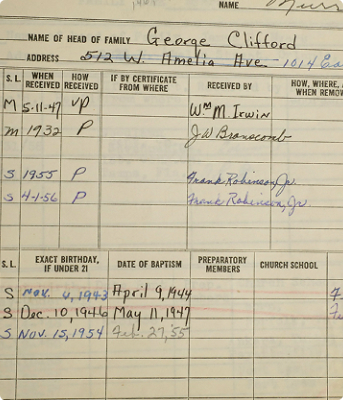 NAME
NAME OF HEAD OF FAMILY George Clifford
ADDRESS 512 W. Amelia Ave. - 1014 Ea
S. L. WHEN RECEIVED HOW RECEIVED IF BY CERTIFICATE FROM WHERE RECEIVED BY HOW, WHERE, A WHEN REMOV
M 5-11-47 VP Wm M. Irwin
m 1932 P J.W. Branscomb
S 1955 P Frank Robinson, Jr.
S 4-1-56 P Frank Robinson, Jr.
S. L. EXACT BIRTHDAY, IF UNDER 21 DATE OF BAPTISM PREPARATORY MEMBERS CHURCH SCHOOL
S Nov. 4, 1943 April 9, 1944
S Dec. 10, 1946 May 11, 1947
S Nov. 15, 1954 Feb. 27, '55